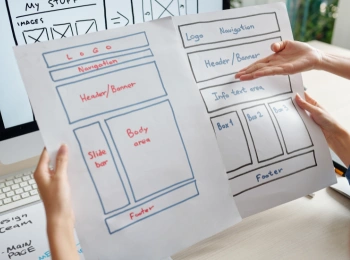 MY STUFF
IMAGES
LOGO
Navigation
Header/Banner
Slide
bar
Body
area
Footer
Logo Navigation
Header/Banner
Info text area
Box 1
Box 2
Footer
Design
team
-MAIN
PAGE